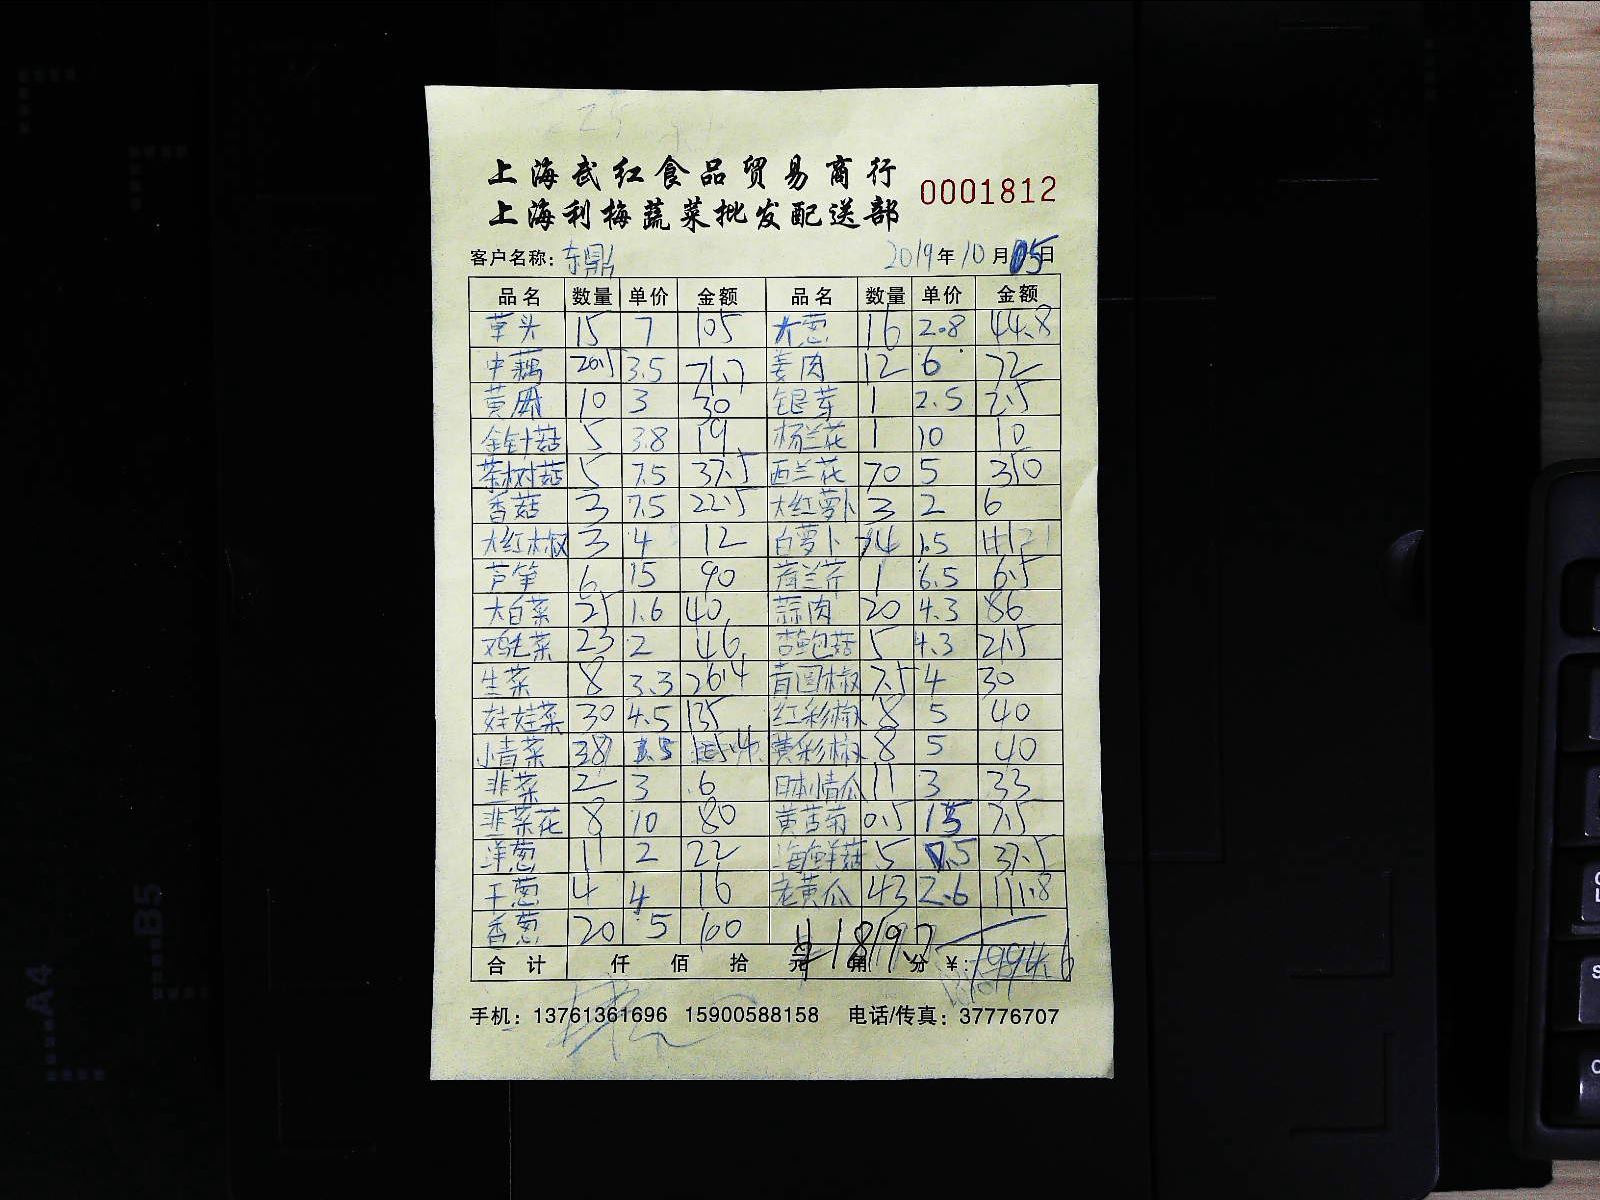 上海武红食品贸易商行
上海利梅蔬菜批发配送部
0001812
客户名称：东鼎 2019年10月05日
品名 数量 单价 金额 品名 数量 单价 金额
草头 15 7 105 大葱 16 2.8 44.8
中藕 20.5 3.5 71.7 姜肉 12 6 72
黄瓜 10 3 30 银芽 1 2.5 2.5
金针菇 5 3.8 19 杨兰花 1 10 10
茶树菇 5 7.5 37.5 西兰花 70 5 350
香菇 3 7.5 22.5 大红萝卜 3 2 6
大红椒 3 4 12 白萝卜 14 1.5 21
芦笋 6 15 90 荷兰芹 1 6.5 6.5
大白菜 25 1.6 40 蒜肉 20 4.3 86
鸡毛菜 23 2 46 杏鲍菇 5 4.3 21.5
生菜 8 3.3 26.4 青圆椒 7.5 4 30
娃娃菜 30 4.5 135 红彩椒 8 5 40
小青菜 38 黄彩椒 8 5 40
韭菜 2 3 6 日本小青瓜 11 3 33
韭菜花 8 10 80 黄苦菊 0.5 15 7.5
洋葱 11 2 22 海鲜菇 5 7.5 37.5
干葱 4 4 16 老黄瓜 43 2.6 111.8
香葱 20 5 100 1819.7
合计 仟 佰 拾 元 角 分 ¥: 1994.6
手机：13761361696 15900588158 电话/传真：37776707
A4
B5